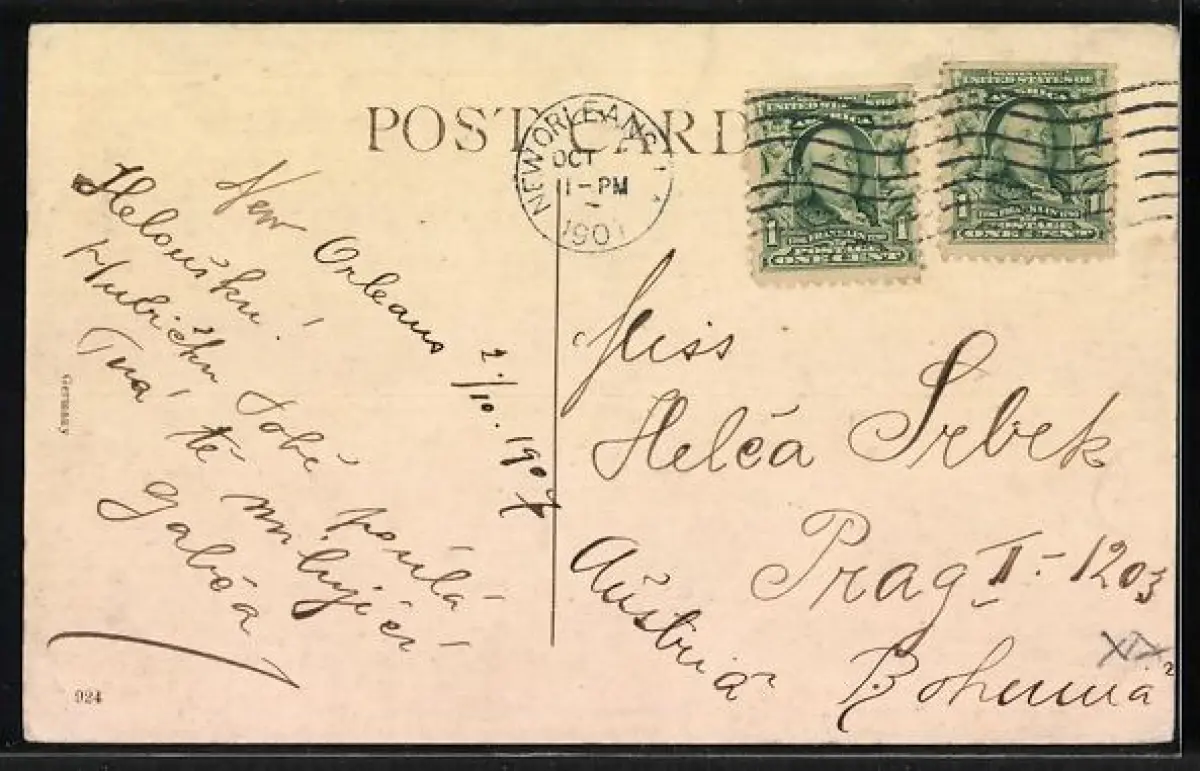 POST CARD
NEW ORLEANS
OCT
1-PM
190
SERIES 1902
UNITED STATES OF
AMERICA
1 1
FRANKLIN
POSTAGE
ONE CENT
SERIES 1902
UNITED STATES OF
AMERICA
1 1
FRANKLIN
POSTAGE
ONE CENT
New Orleans 2./10. 1907
Heloušku!
Hubičku Tobě posílá
Tvá tě milující
Gabča
Miss
Helča Srbek
Prag II - 1203
Austria Bohemia
XIX
Germany
924